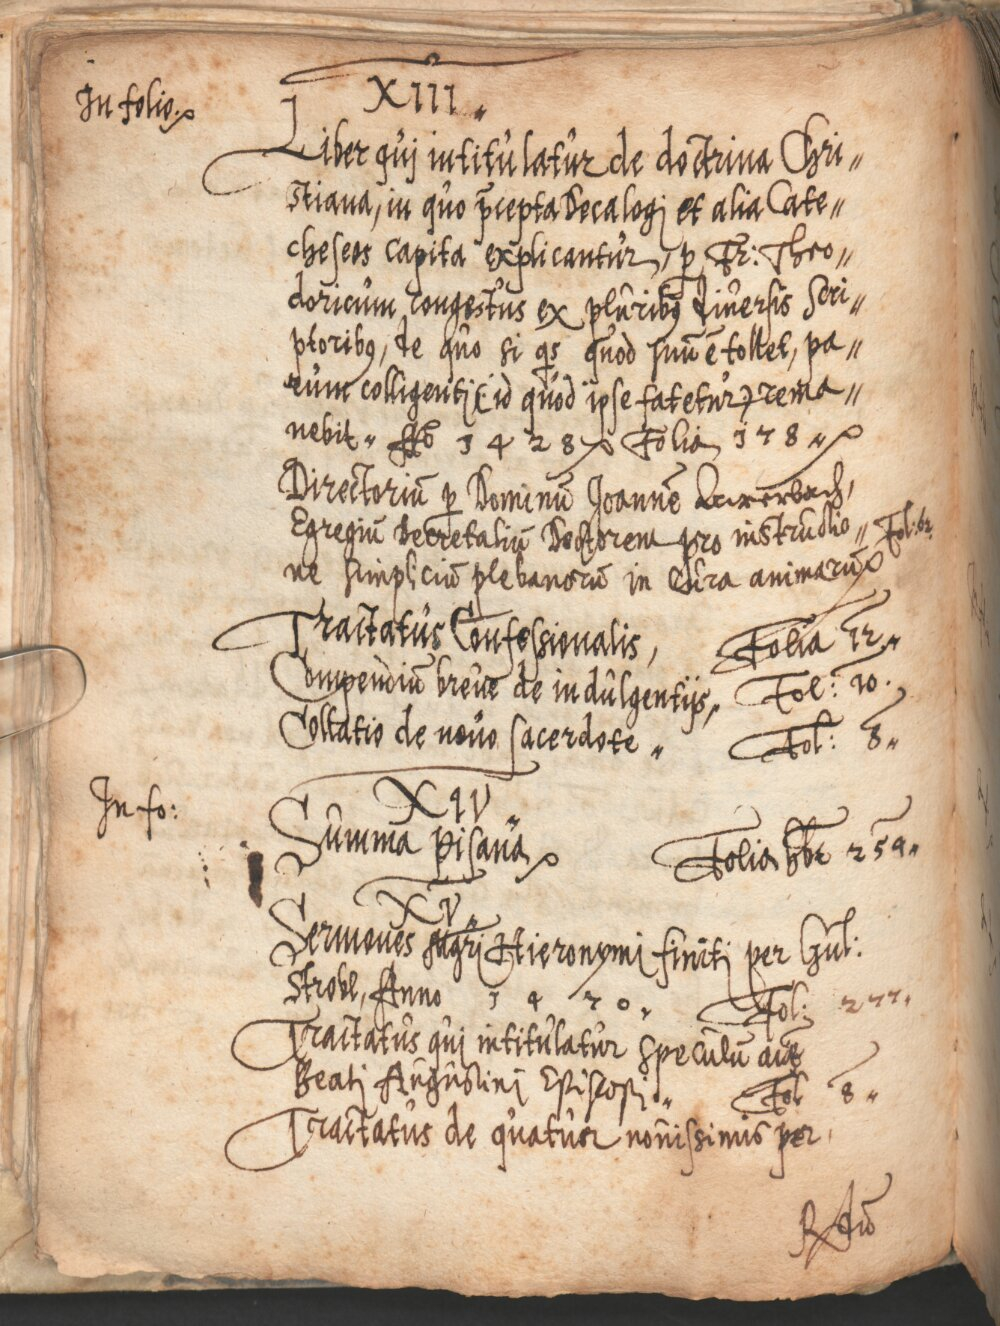 In folio
XIII
Liber quj intitulatur de doctrina Chri„
stiana, in quo p̄cepta Decalogj et alia Cate„
cheseos capita explicantur, p Fr: Theo„
doricum congestus ex pluribꝫ diuersis Scri„
ptoribꝫ, de quo si qs quod suū ē tollet, pa„
rum colligentj (id quod ipse fatetur) rema„
nebit„ Aō 1428 Folia 178„
Directoriū p Dominū Joannē Aurerbach,
Egregiū Decretaliū Doctorem pro instructio„ Fol: 62.
ne simpliciū plebanorū in Cura animarū
Tractatus Confessionalis, Folia 12„
Compendiū breue de indulgentijs, Fol: 20.
Collatio de nouo sacerdote„ Fol: 8„
In fo:
XIV
Summa Pisana Folia hbt 259„
XV„
Sermones Mgri Hieronymi finitj per Gul:
Strobl, Anno 1470, Fol: 277„
Tractatus quj intitulatur Speculū
Beatj Augustinj Episcopj„ Fol 8„
Tractatus de quatuor nouissimis per